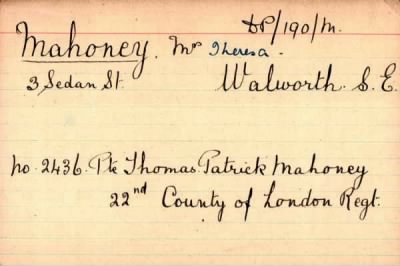 DP/190/M.
Mahoney. Mrs Theresa.
3 Sedan St. Walworth. S.E.
No. 2436. Pte Thomas Patrick Mahoney
22nd County of London Regt.